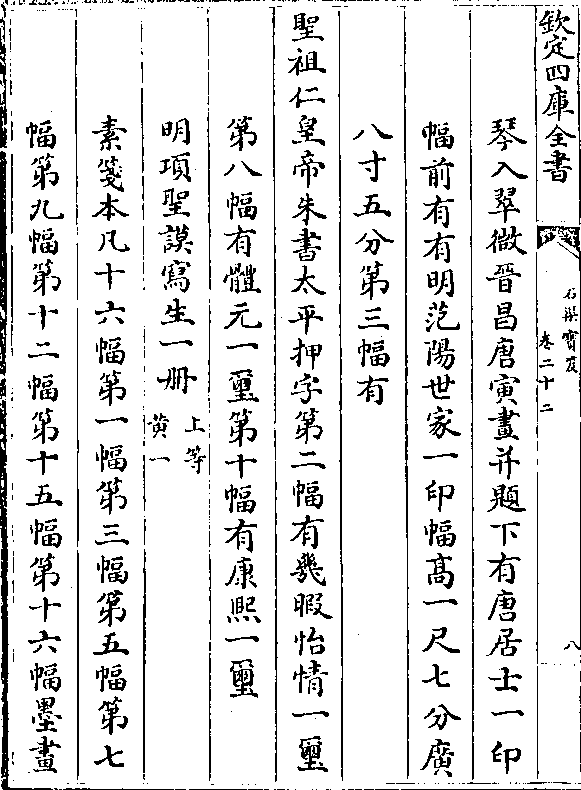 欽定四庫全書
石渠寶笈
卷二十二
八
琴入翠微晉昌唐寅畫并題下有唐居士一印
幅前有有明范陽世家一印幅高一尺七分廣
八寸五分第三幅有
聖祖仁皇帝朱書太平押字第二幅有㡬暇怡情一璽
第八幅有體元一璽第十幅有康熙一璽
明項聖謨寫生一册
上等
黄一
素箋本凡十六幅第一幅第三幅第五幅第七
幅第九幅第十二幅第十五幅第十六幅墨畫